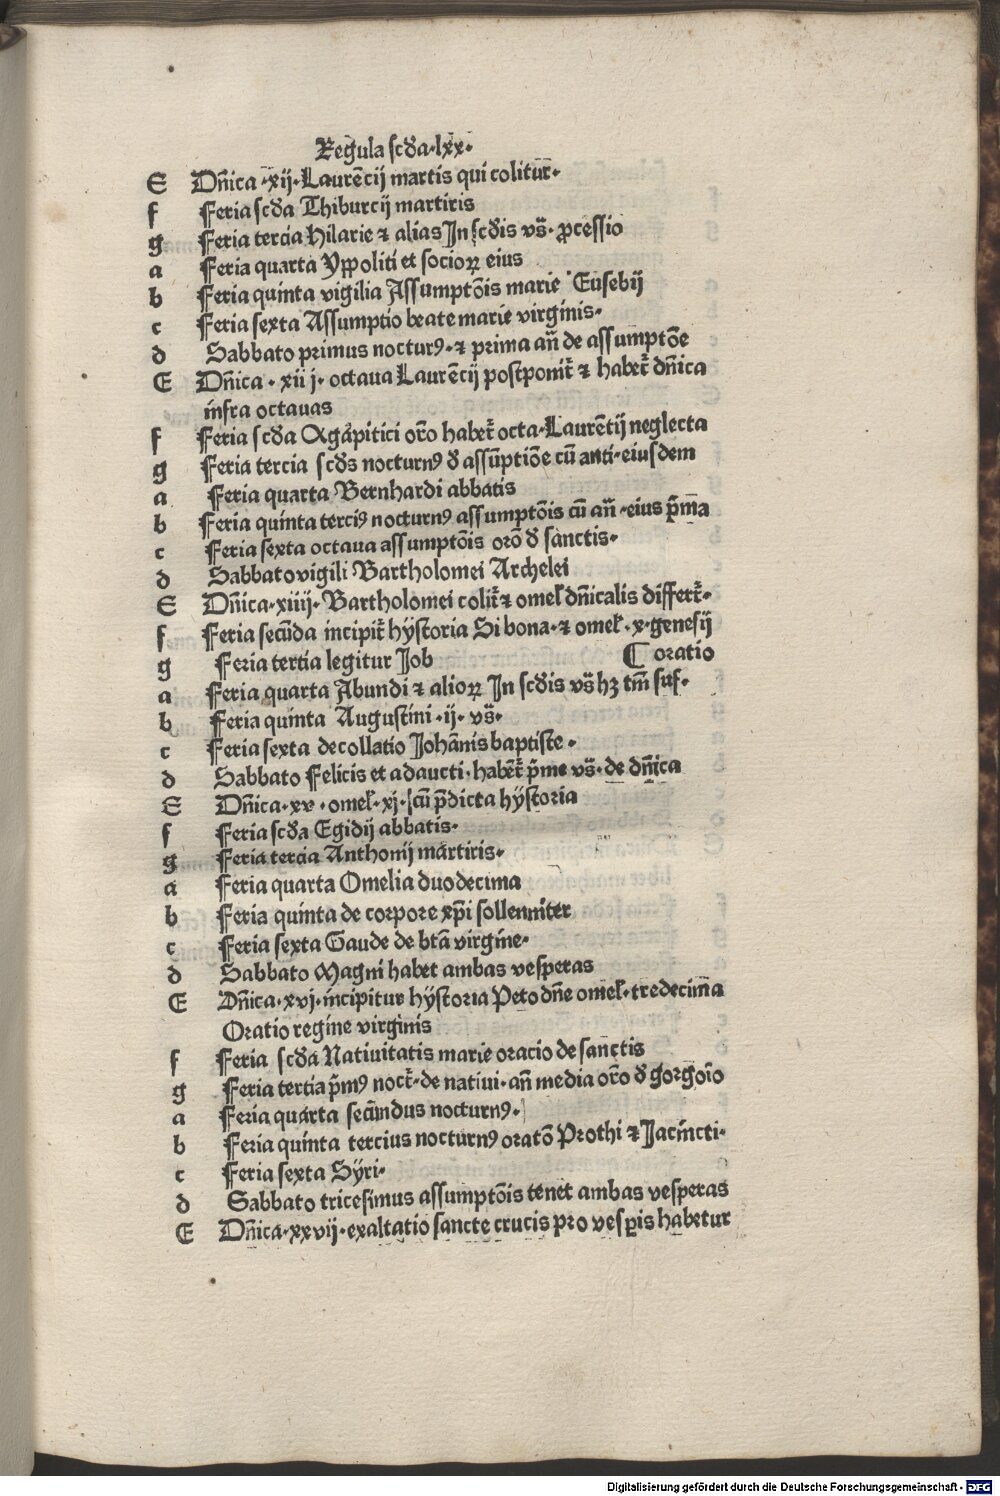 Regula scd̄a·lxx·
E Dn̄ica·xij·Laurēcij martis qui colitur̄·
f Feria scd̄a Thiburcij martiris
g Feria tercia Hilarie ⁊ alias In scd̄is vs̄· ꝓcessio
a Feria quarta Yꝑpoliti et socioꝝ eius
b Feria quinta vigilia Assumptōis marie Eusebij
c Feria sexta Assumptio beate marie virginis·
d Sabbato primus nocturꝰ·⁊ prima an̄ de assumptōe
E Dn̄ica·xiij·octaua Laurēcij postponit̄ ⁊ habet̄ dn̄ica
infra octauas
f Feria scd̄a Agapitici orō habet̄ octa·Laurētij neglecta
g Feria tercia scd̄s nocturnꝰ d̄ assūptiōe cū anti·eiusdem
a Feria quarta Bernhardi abbatis
b Feria quinta terciꝰ nocturnꝰ assumptōis cū an̄·eius p̄ma
c Feria sexta octaua assumptōis orō d̄ sanctis·
d Sabbato vigili Bartholomei Archelei
E Dn̄ica·xiiij·Bartholomei colit̄ ⁊ omel̄ dn̄icalis differt̄·
f Feria secūda incipit̄ hystoria Si bona·⁊ omel̄·x·genesij
g Feria tertia legitur Job ⸿ oratio
a Feria quarta Abundi ⁊ alioꝝ In scd̄is vs̄ hꝫ tm̄ suf·
b Feria quinta Augustini·ij·vs̄·
c Feria sexta decollatio Johānis baptiste·
d Sabbato Felicis et adaucti·habēt̄ p̄me vs̄·de dn̄ica
E Dn̄ica·xv·omel̄·xj·cū p̄dicta hystoria
f Feria scd̄a Egidij abbatis·
g Feria tercia Anthonij martiris·
a Feria quarta Omelia duodecima
b Feria quinta de corpore xp̄i sollenniter
c Feria sexta Gaude de btā virgine·
d Sabbato Magni habet ambas vesperas
E Dn̄ica·xvj·incipitur hystoria Peto dn̄e omel̄·tredecima
Oratio regine virginis
f Feria scd̄a Natiuitatis marie oracio de sanctis
g Feria tertia p̄mꝰ noct̄·de natiui·an̄ media orō d̄ gorgoīo
a Feria quarta secūndus nocturnꝰ·
b Feria quinta tercius nocturnꝰ oratō Prothi ⁊ Jacincti·
c Feria sexta Syri·
d Sabbato tricesimus assumptōis tenet ambas vesperas
E Dn̄ica·xxvij·exaltatio sancte crucis pro vesꝑis habetur
Digitalisierung gefördert durch die Deutsche Forschungsgemeinschaft - DFG